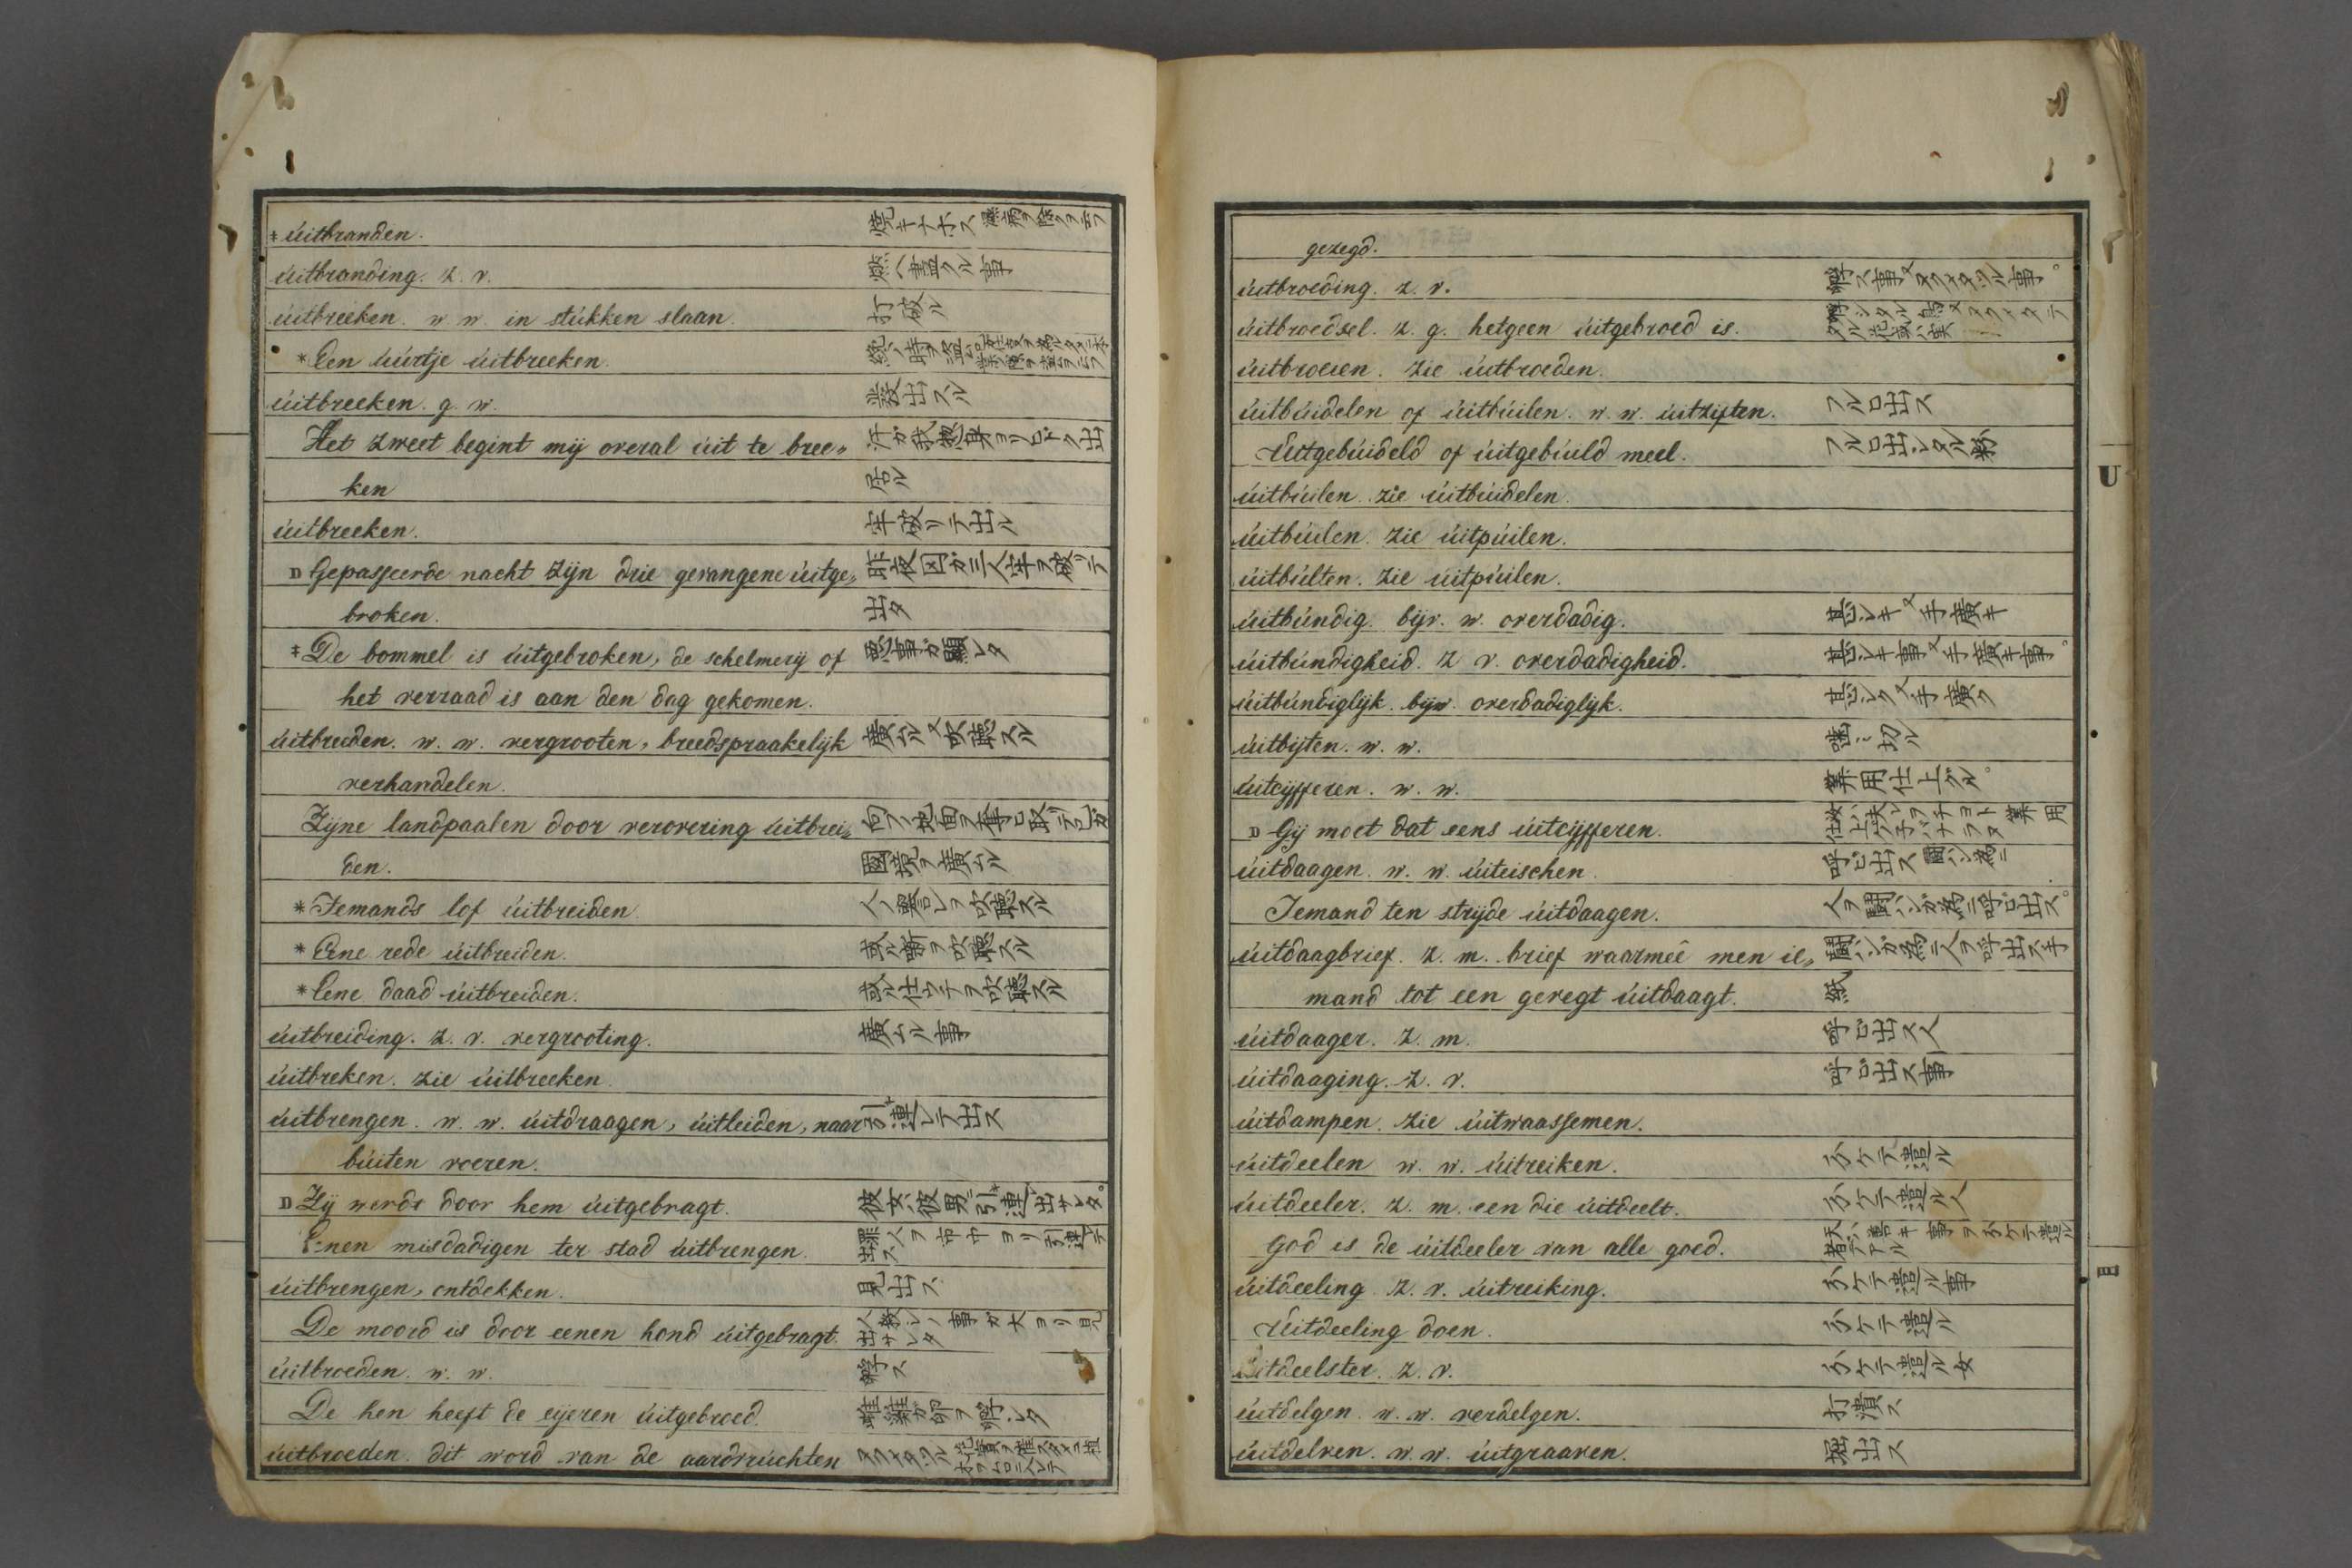 * úitbranden. 焼キナホス
úitbranding. z. v. 燃へ盡クル事
úitbreeken. w. w. in stúkken slaan. 打破ル
* Een úúrtje úitbreeken.
úitbreeken. g. w. 發出スル
Het zweet begint mij overal úit te bree„
ken 居ル
úitbreeken. 牢破リテ出ル
D Gepasseerde nacht zijn drie gevangene úitge„ 昨夜囚ガ三人牢ヲ破リテ
broken. 出タ
* De bommel is úitgebroken, de schelmerij of 悪事ガ顕レタ
het verraad is aan den dag gekomen.
úitbreiden. w. w. vergrooten, breedspraakelijk 廣ムル 又 吹聴スル
verhandelen.
Zijne landpaalen door verovering úitbrei„
den. 國境ヲ廣ムル
* Iemands lof úitbreiden 人ノ誉レヲ吹聴スル
* Eene rede úitbreiden. 或ル噺ヲ吹聴スル
* Eene daad úitbreiden. 或ル仕ワサヲ吹聴スル
úitbreiding. z. v. vergrooting. 廣ムル事
úitbreken. zie úitbreeken.
úitbrengen. w. w. úitdraagen, úitleiden, naar 引連レテ出ス
búiten voeren.
D Zij werdt door hem úitgebragt. 彼女ハ彼男ニ引連出サレタ。
Eenen misdadigen ter stad úitbrengen. 罪人ヲ市中ヨリ引連テ
出ス
úitbrengen, ontdekken. 見出ス
De moord is door eenen hond úitgebragt. 人殺シノ事ガ犬ヨリ見
出サレタ
úitbroeden. w. w. 孵ス
De hen heeft de eijeren úitgebroed. 雌雞ガ卵ヲ孵シタ
úitbroeden. dit word van de aardvrúchten
gezegd.
úitbroeding. z. v.
úitbroedsel. z. g. hetgeen úitgebroed is.
úitbroeien. zie úitbroeden.
úitbúidelen of úitbúilen. w. w. úitziften. フルヒ出ス
Uitgebúideld of úitgebúild meel. フルヒ出シタル粉
úitbúilen. zie úitbúidelen.
úitbúilen. zie úitpúilen.
úitbúlten. zie úitpúilen.
úitbúndig. bijv. w. overdadig. 甚シキ 又 手廣キ
úitbúndigheid. z v. overdadigheid. 甚シキ事 又 手廣キ事。
úitbúndiglijk. bijw. overdadiglijk. 甚シク 又 手廣ク
úitbijten. w. w. 噛ミ切ル
úitcijfferen. w. w. 筭用仕上グル。
D Gij moet dat eens úitcijfferen. 汝ハ夫レヲチヨト筭用
仕上ケ子バナラヌ
úitdaagen. w. w. úiteischen. 呼ビ出ス
Iemand ten strijde úitdaagen. 人ヲ闘ハンガ為ニ呼ヒ出ス。
úitdaagbrief. z. m. brief waarmeê men ie„ 闘ハンガ為ニ人ヲ呼出ス手
mand tot een gevegt úitdaagt. 紙
úitdaager. z. m. 呼ビ出ス人
úitdaaging. z. v. 呼ビ出ス事
úitdampen. zie úitwaassemen.
úitdeelen w. w. úitreiken. 分ケテ遣ル
úitdeeler. z. m. een die úitdeelt. 分ケテ遣ル人
God is de úitdeeler van alle goed. 天ハ善キ事ヲ分ケテ遣ル
者デアル
úitdeeling z. v. úitreiking. 分ケテ遣ル事
Uitdeeling doen. 分ケテ遣ル
úitdeelster. z. v. 分ケテ遣ル女
úitdelgen. w. w. verdelgen. 打潰ス
úitdelven. w. w. úitgraaven. 堀出ス
U
E